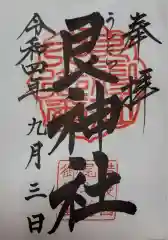 奉拝
うしとら
艮神社
令和四年
九月三日